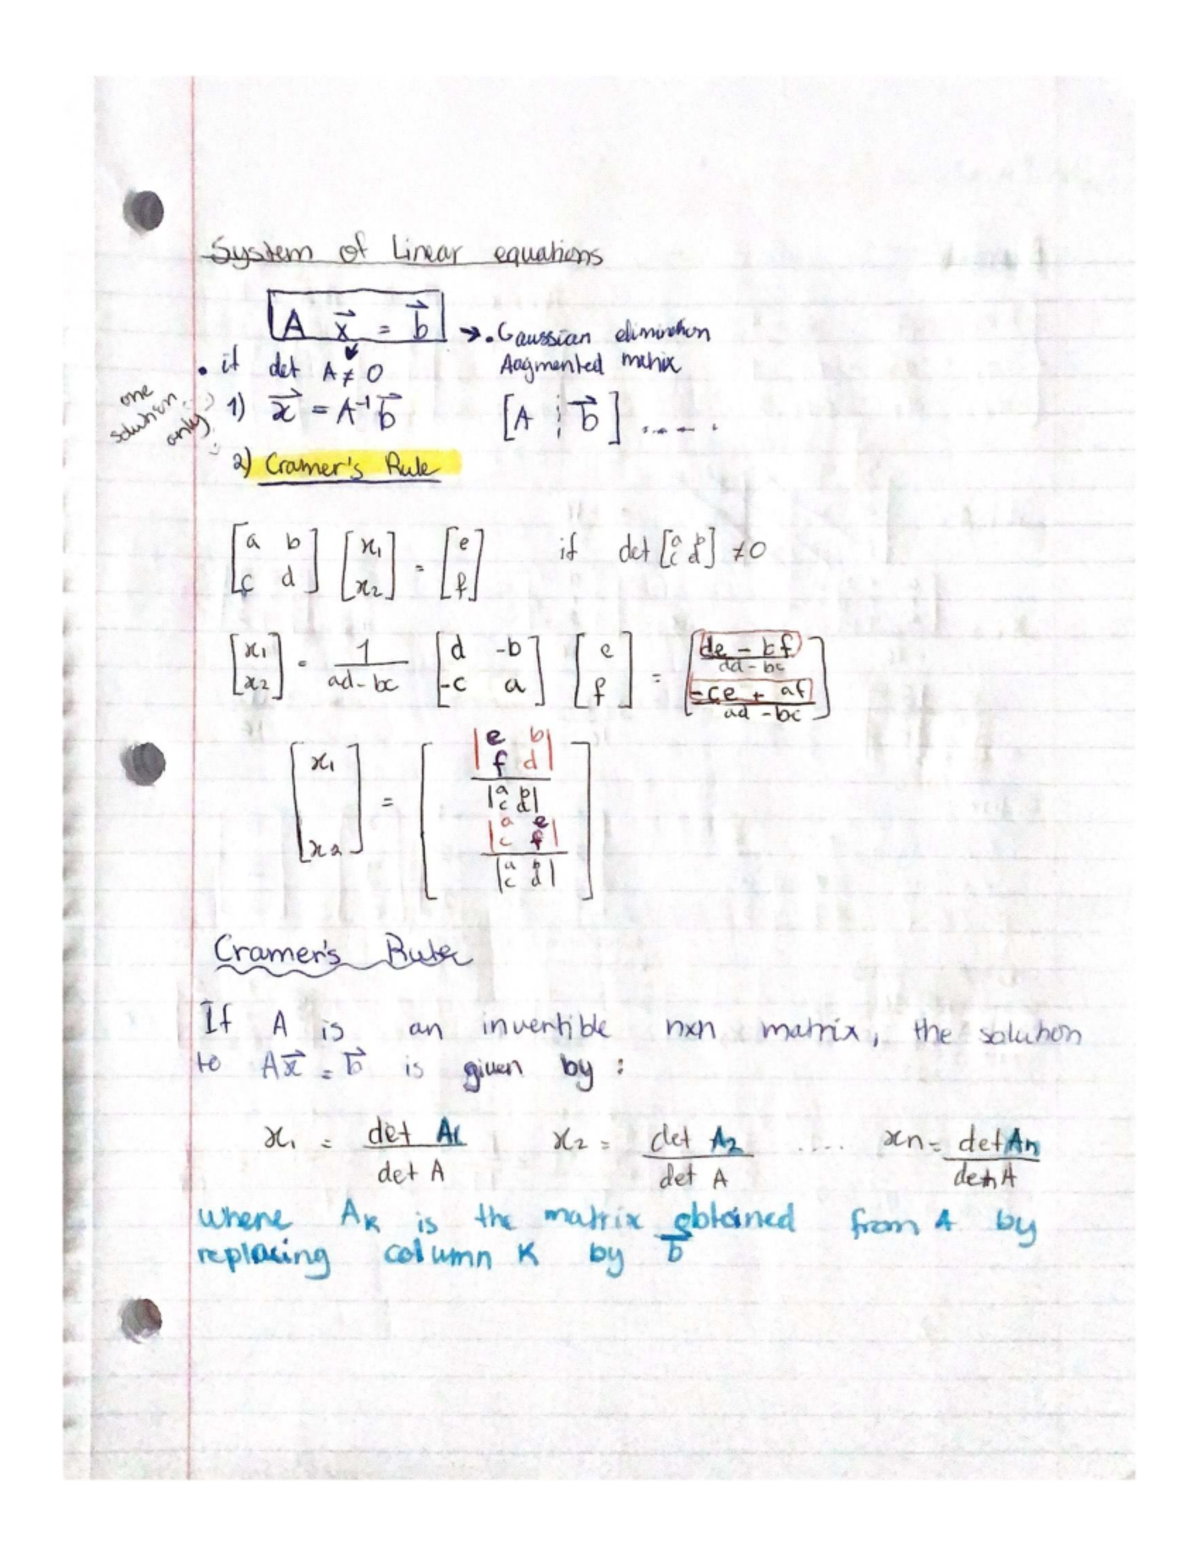 System of Linear equations
A x⃗ = b⃗ → . Gaussian elimination
Aagmented matrix
• if det A ≠ 0
one solution only
1) x⃗ = A⁻¹ b⃗ [A ⋮ b⃗] .....
2) Cramer's Rule
[a b; c d] [x₁; x₂] = [e; f] if det [a b; c d] ≠ 0
[x₁; x₂] = 1/(ad-bc) [d -b; -c a] [e; f] = [(de - bf)/(ad-bc); (-ce + af)/(ad-bc)]
[x₁; x₂] = [|e b; f d| / |a b; c d|; |a e; c f| / |a b; c d|]
Cramer's Rule
If A is an invertible nxn matrix, the solution
to Ax⃗ = b⃗ is given by :
x₁ = det A₁ / det A x₂ = det A₂ / det A .... xn = det An / det A
where AK is the matrix obtained from A by
replacing column K by b⃗